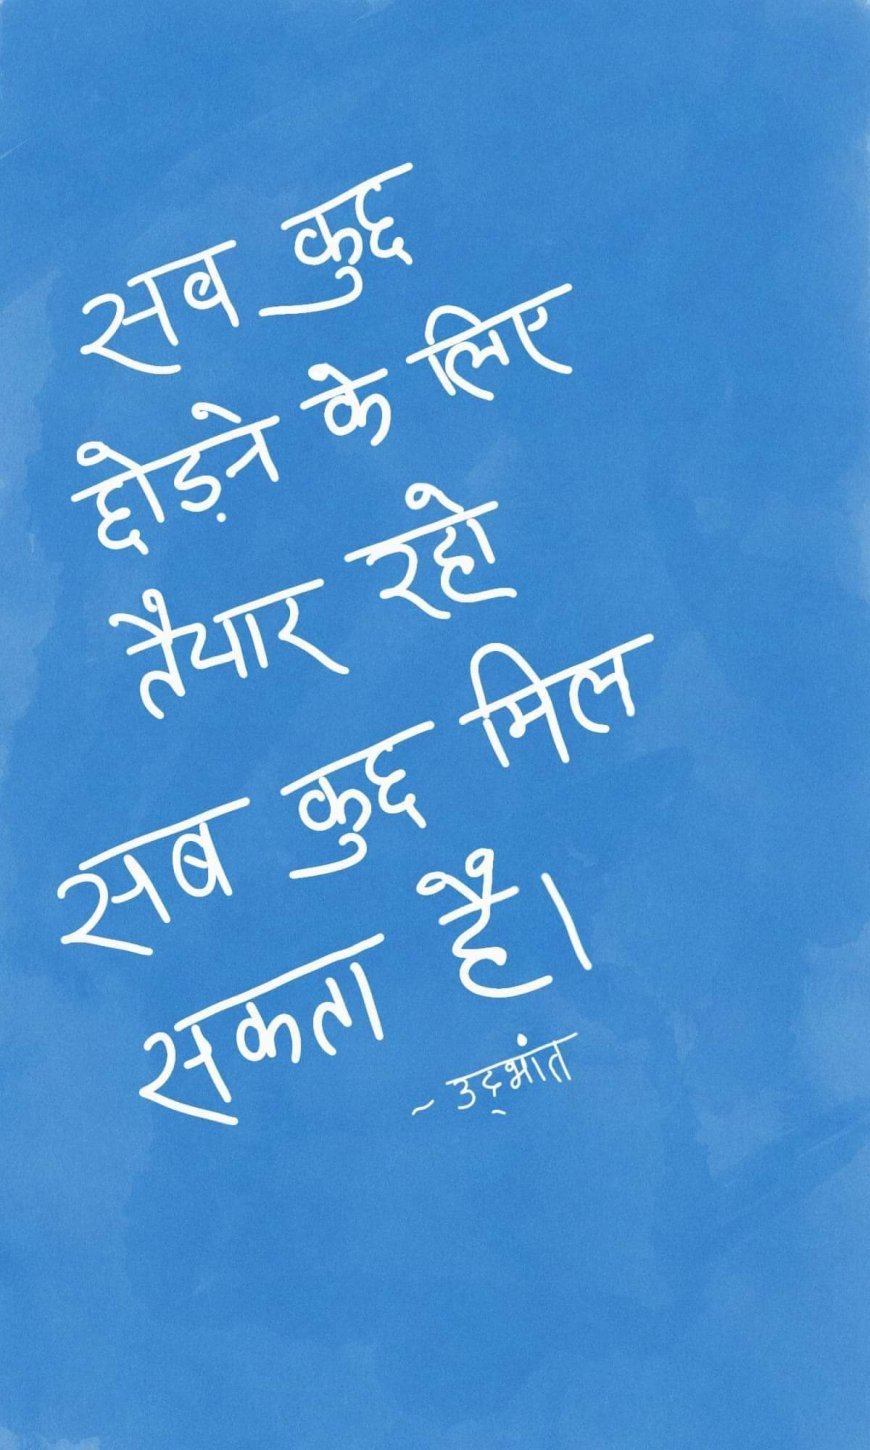 सब कुछ
छोड़ने के लिए
तैयार रहो
सब कुछ मिल
सकता है।
~ उद्भांत